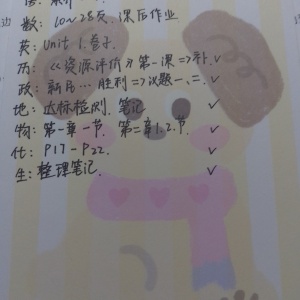 数: 10~28页, 课后作业
英: Unit 1. 卷子.
历: 《资源评价》第一课 => 补. ✓
政: 新民… 胜利 => 议题一、二. ✓
地: 达标检测. 笔记 ✓
物: 第一章一节. 第二章1.2.节. ✓
化: P17-P22. ✓
生: 整理笔记. ✓